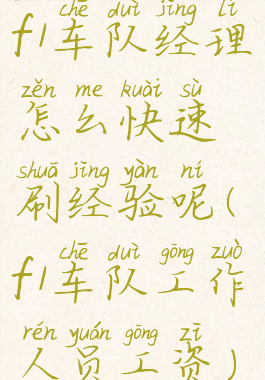 chē duì jīng lǐ
f1车队经理
zěn me kuài sù
怎么快速
shuā jīng yàn ní
刷经验呢(
chē duì gōng zuò
f1车队工作
rén yuán gōng zī
人员工资)